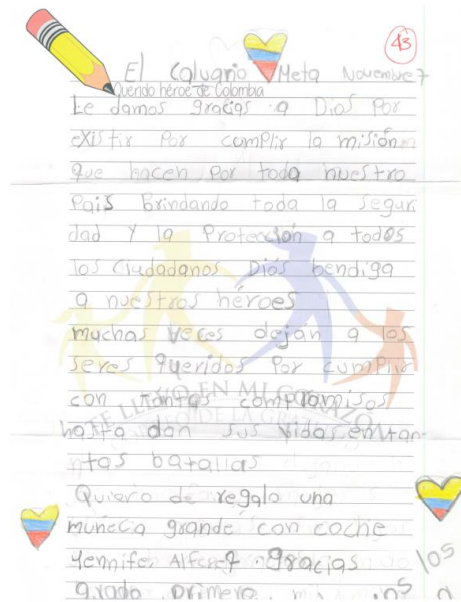 43
El Calvario Meta Novembre 7
Querido héroe de Colombia
Le damos gracias a Dios Por
existir Por cumplir la misión
que hacen Por toda nuestro
Pais Brindando toda la Seguri
dad y la Protección a todos
los Ciudadanos Dios bendiga
a nuestros héroes
muchas veces dejan a los
seres queridos Por cumplir
con tantas compromisos
hasta dan sus vidas entan-
ntas batallas
Quiero de regalo una
muñeca grande con coche
Yennifer Alferez gracias
los
grado primero